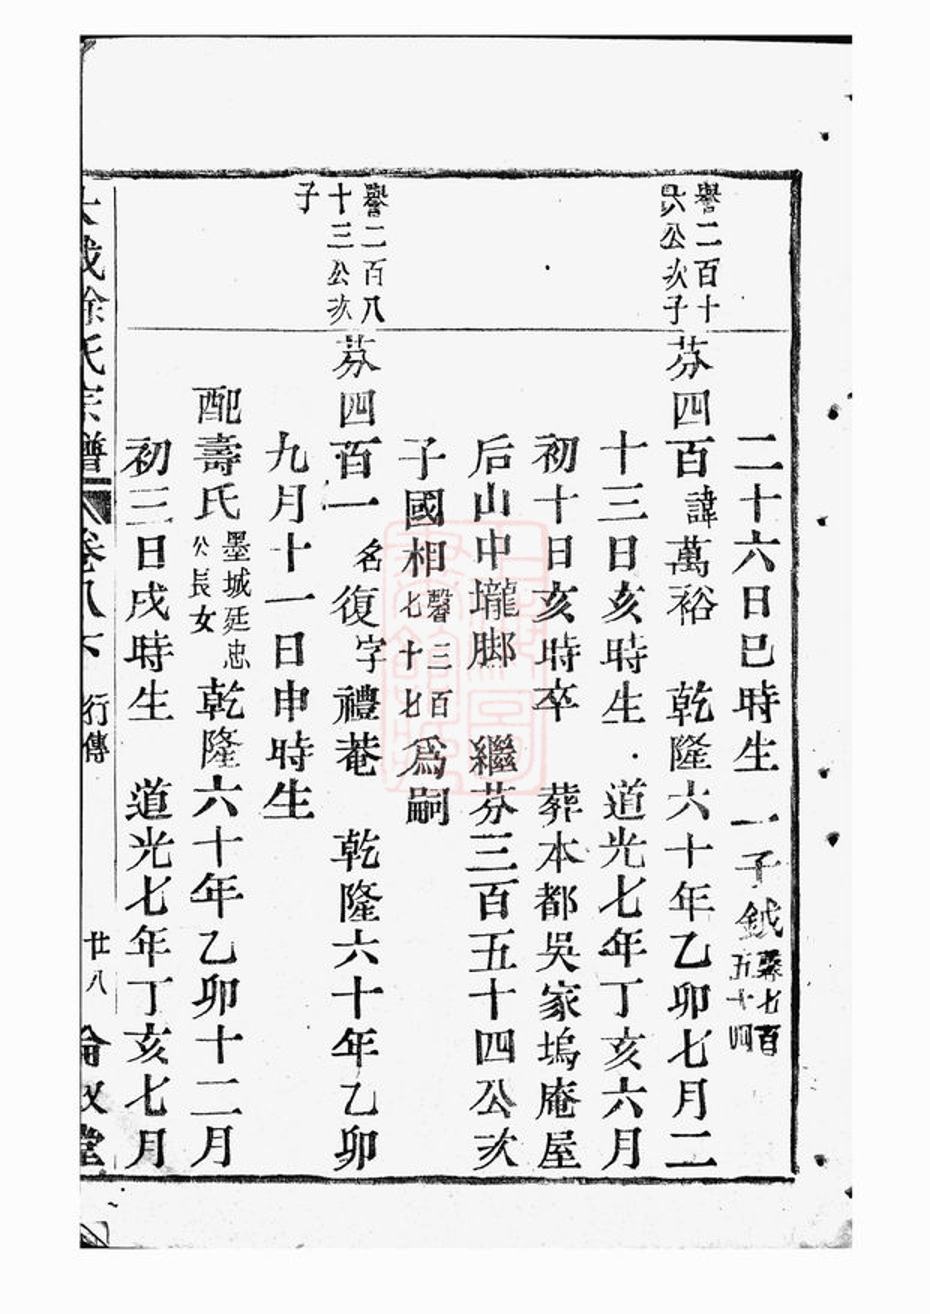 二十六日巳時生　一子鉞馨七百五十四
譽二百十六公次子
芬四百諱萬裕　乾隆六十年乙卯七月二
十三日亥時生　道光七年丁亥六月
初十日亥時卒　葬本都吳家塢庵屋
后山中壠脚　繼芬三百五十四公次
子國相馨三百七十七爲嗣
譽二百八十三公次子
芬四百一名復字禮菴　乾隆六十年乙卯
九月十一日申時生
配壽氏墨城廷忠公長女乾隆六十年乙卯十二月
初三日戌時生　道光七年丁亥七月
徐氏宗譜　卷八下　行傳　廿八　倫敘堂